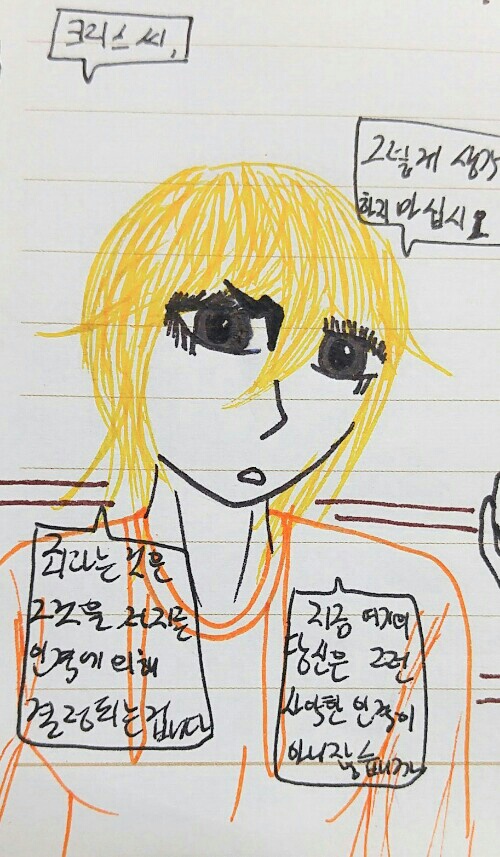 크리스 씨,
그렇게 생각
하지 마십시오
죄라는 것은
그것을 저지른
인격에 의해
결정되는겁니다
지금 여기의
당신은 그런
사악한 인격이
아니잖습니까